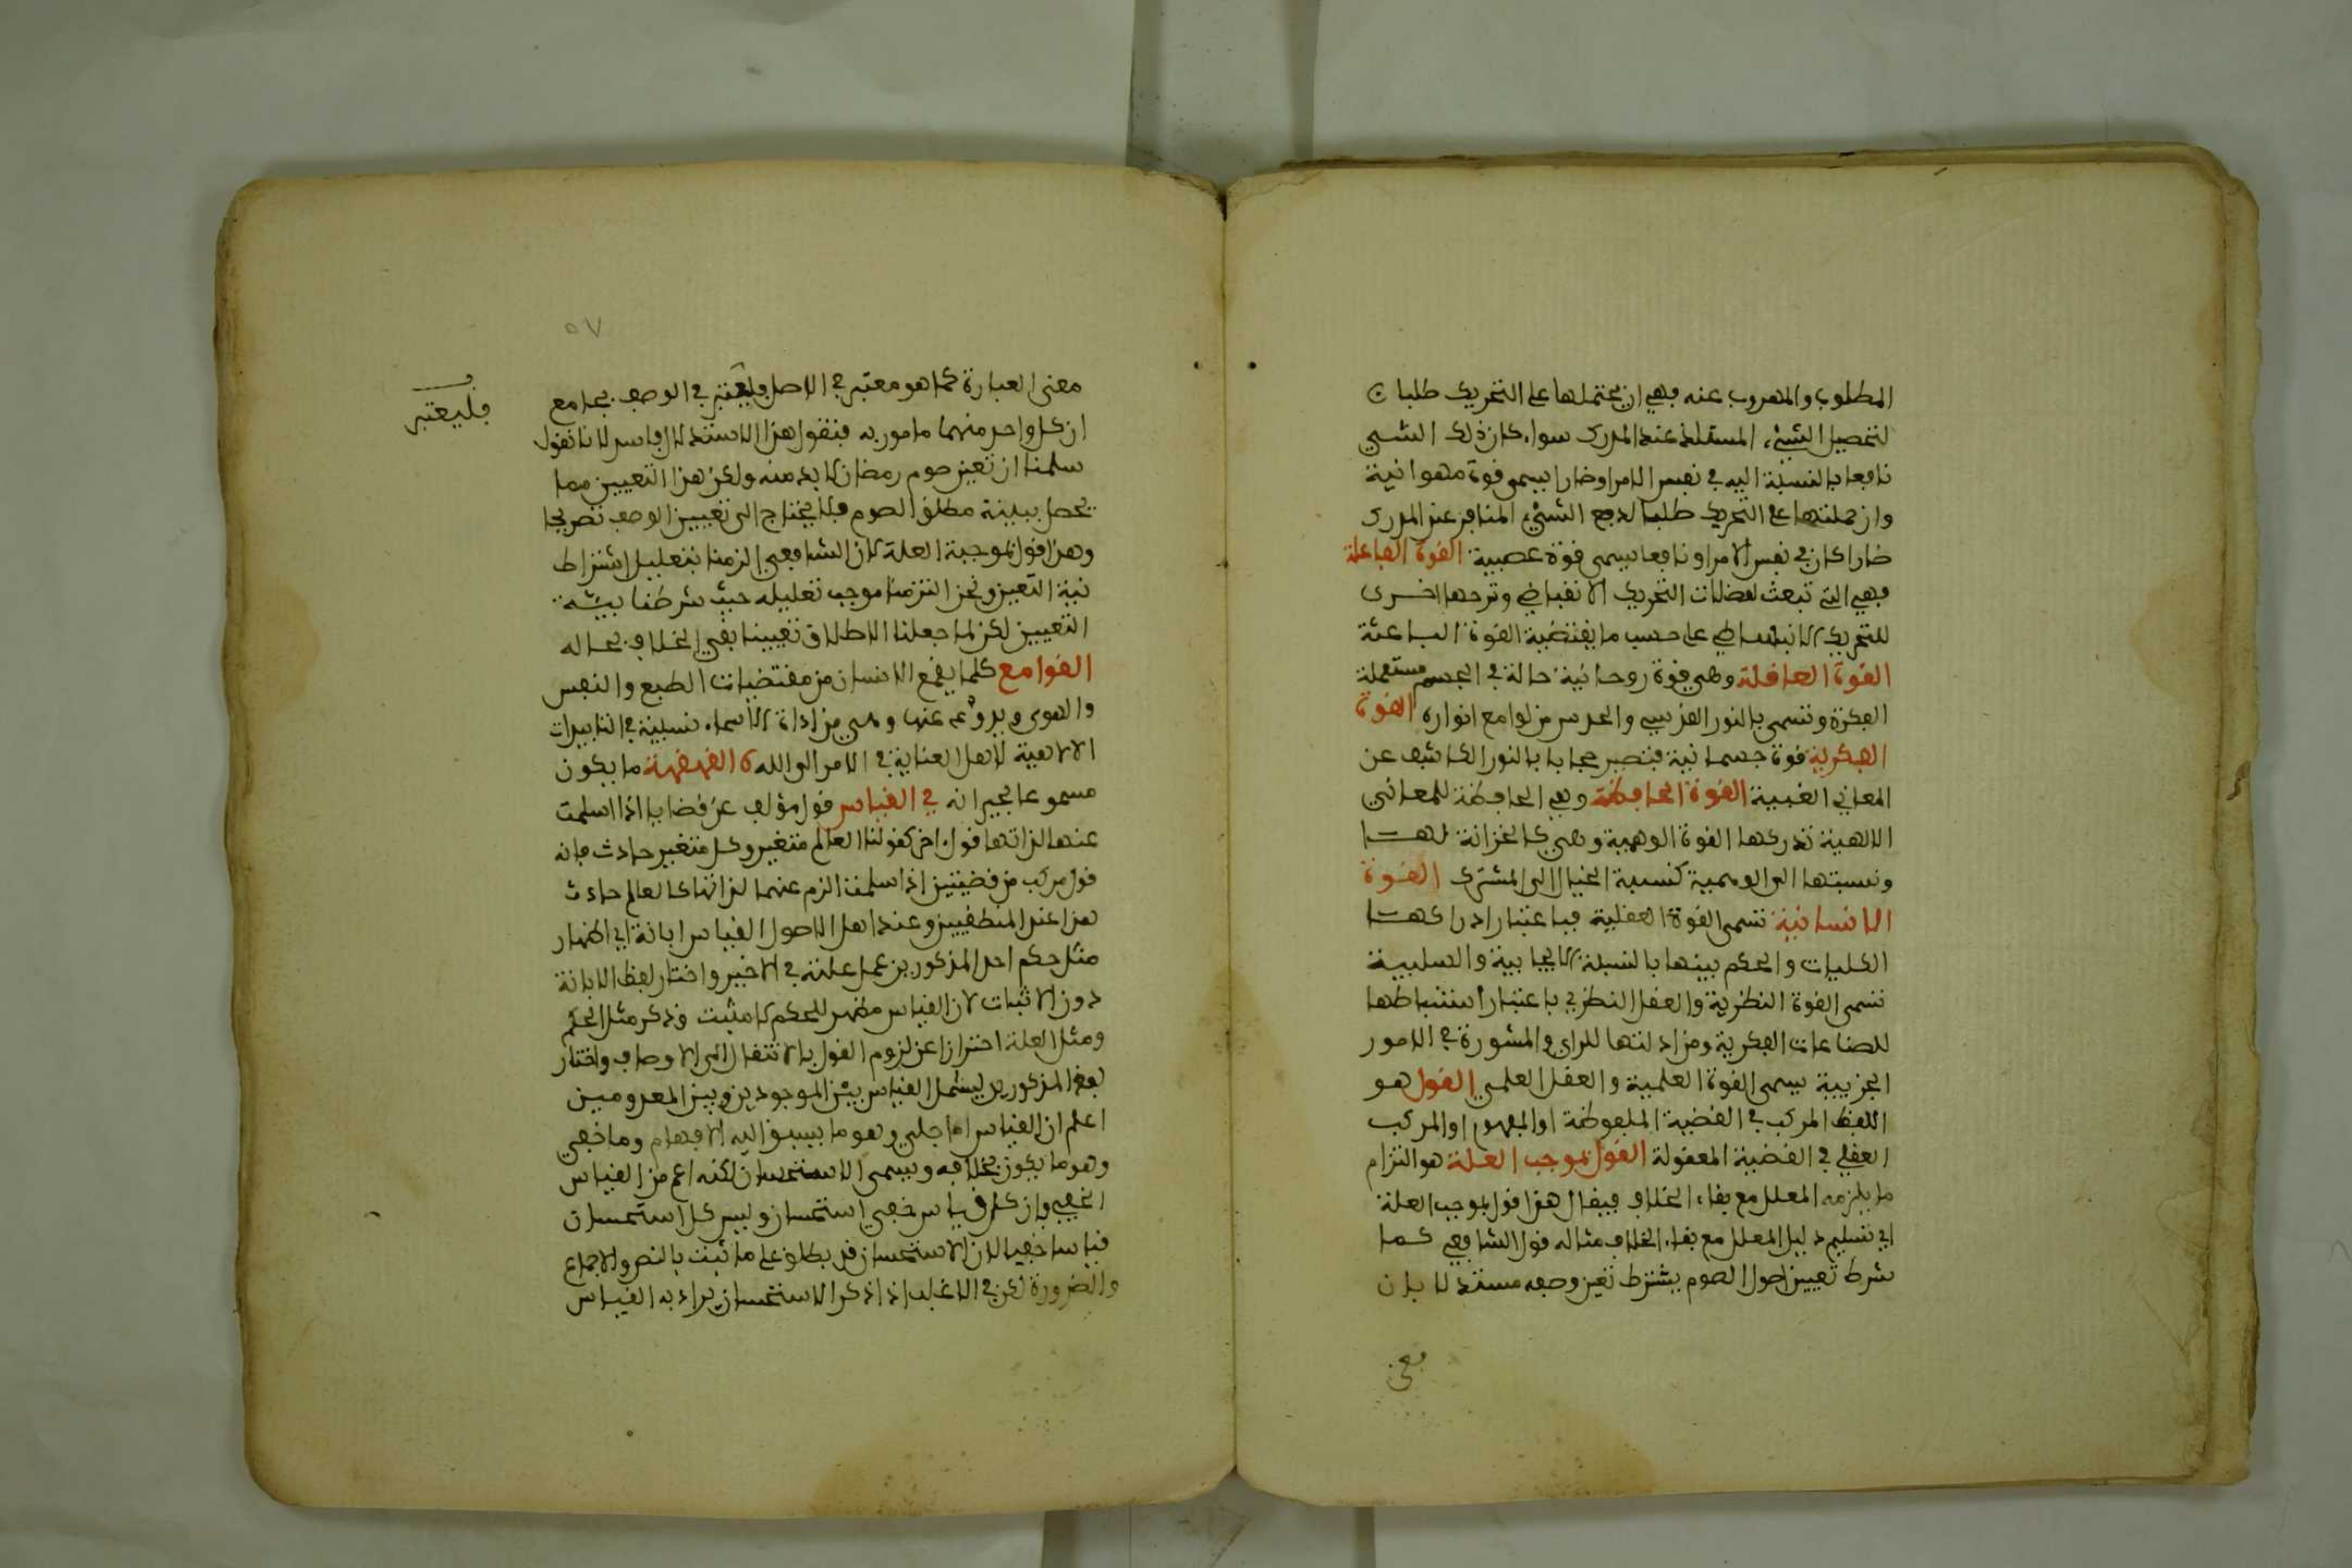 المطلوب والمهروب عنه فهي ان تحتملها على التحريك طلبا ن
لتحصيل الشيء المستلذ عند المدرك سواء كان ذلك الشيي
نافعا بالنسبة اليه في نفس الامر او ضارا يسمى قوة مهوانية
وان حملتها على التحريك طلبا لدفع الشيء المنافر عند المدرك
ضارا كان في نفس الامر او نافعا يسمى قوة عصبية القوة الفاعلة
فهي التي تبعث لعضلات التحريك الانقباضي وترحها اخرى
للتحريك الانبساطي على حسب ما يقتضية القوة الباعثة
القوة العاقلة وهي قوة روحانية حالة في الجسم مستعملة
الفكرة وتسمى بالنور القدسي والحدس من لوامع انواره القوة
الفكرية قوة جسمانية فتصير حجابا بالنور الكاشف عن
المعاني الغيبية القوة الحافظة وهي الحافظة للمعاني
الالهية تدركها القوة الوهمية وهي كالخزانة لها
ونسبتها الى الوهمية كنسبة الخيال الى المشترك القوة
الانسانية تسمى القوة العقلية فباعتبار ادراكها
الكليات والحكم بينها بالنسبة الايجابية والسلبية
تسمى القوة النظرية والعقل النظري باعتبار استنباطها
للصناعات الفكرية ومزادلتها للراي والمشورة في الامور
الجزيية يسمى القوة العلمية والعقل العلمي القول هو
اللفظ المركب في القضية الملفوظة او المفهوم او المركب
العقلي في القضية المعقولة القول بموجب العلة هو التزام
ما يلزمه المعلل مع بقاء الخلاف فيقال هذا قول بموجب العلة
اي تسليم دليل المعلل مع بقاء الخلاف مثاله قول الشافعي كما
شرط تعيين اصول الصوم يشترط تعين وصفه مستدلا بان
معنى
٥٧
معنى العبارة كما هو معتبر في الاصل فليعتبر في الوصف بجامع
فليعتبر
ان كل واحد منهما مامور به فنقول هذا الاستدلال فاسد لانا نقول
سلمنا ان تعين صوم رمضان لا بد منه ولكن هذا التعيين مما
يحصل ببينة مطلق الصوم فلا يحتاج الى تعيين الوصف تصريحا
وهذا قول بموجبة العلة لان الشافعي الزمنا بتعليل اشتراط
نية التعين ونحن التزمنا موجب تعليله حيث شرطنا بيتة
التعيين لكن لما جعلنا الاطلاق تعيينا بقي الخلاف بحاله
القوامع كلما يقمع الانسان من مقتضيات الطبع والنفس
والهوى ويردعه عنها وهي من اداة الاسماء نسبية في التابيدات
الالاهية لاهل العناية في الامر الى الله القهقهة ما يكون
مسموعا لجيرانه في القياس قول مؤلف عن قضايا اذا اسلمت
عنها لذاتها قول اخر كقولنا العالم متغير وكل متغير حادث فانه
قول مركب من قضيتين اذا سلمت الزم عنهما لذاتها كالعالم حادث
هذا عند المنطقيين وعند اهل الاصول القياس ابانة اي اظهار
مثل حكم احد المذكورين بمثل علته في الاخير واختار لفظ الابانة
دون الاثبات لان القياس مظهر للحكم لا مثبت وذكر مثل الحكم
ومثل العلة احترازا عن لزوم القول بالانتقال الى الاوصاف واختار
لفظ المذكورين ليشمل القياس بين الموجودين وبين المعدومين
اعلم ان القياس اما جلي وهو ما يسبق اليه الافهام وما خفي
وهو ما يكون بخلافه ويسمى الاستحسان لكنه اعم من القياس
الخفي وان كل قياس خفي استحسان وليس كل استحسان
قياسا خفيا لان الاستحسان قد يطلق على ما ثبت بالنص والاجماع
والضرورة لكن في الاغلب اذا ذكر الاستحسان يراد به القياس